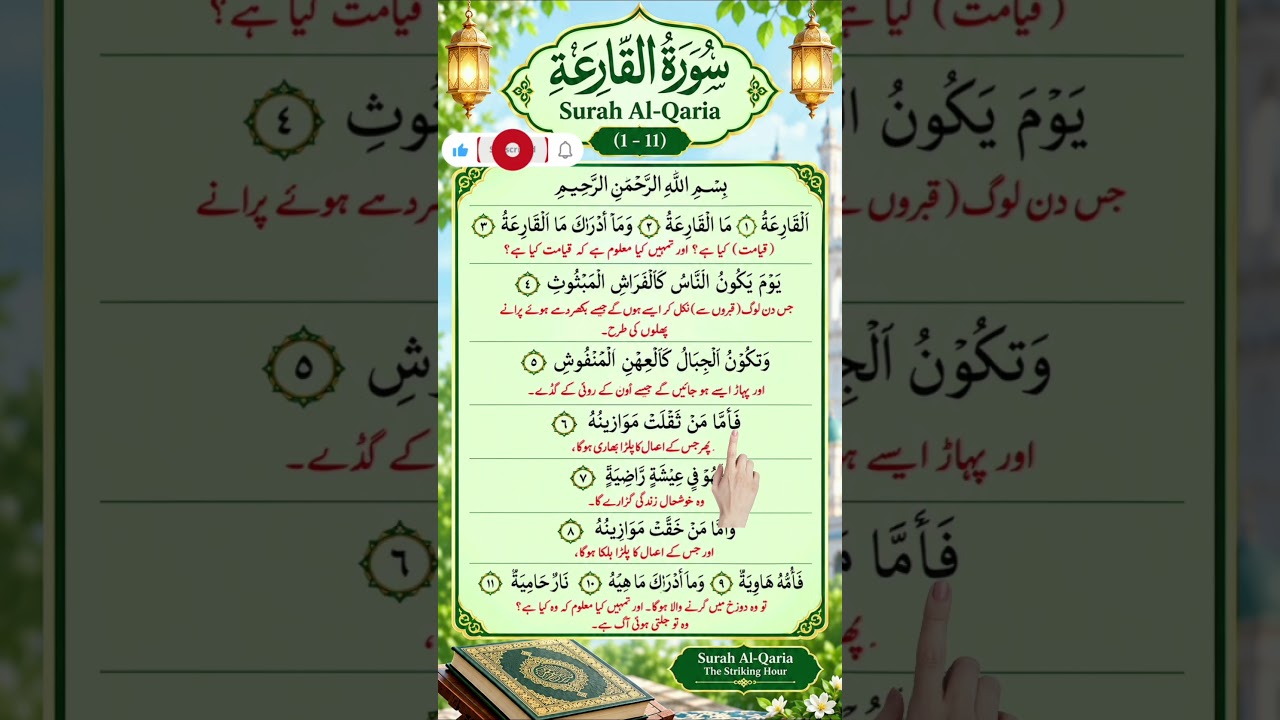 سُوْرَةُ الْقَارِعَةِ
Surah Al-Qaria
(1 – 11)
بِسْمِ اللّٰهِ الرَّحْمَنِ الرَّحِيمِ
اَلْقَارِعَةُ ١ مَا الْقَارِعَةُ ٢ وَمَاۤ أَدْرَاكَ مَا الْقَارِعَةُ ٣
( قیامت ) کیا ہے؟ اور تمہیں کیا معلوم ہے کہ قیامت کیا ہے؟
يَوْمَ يَكُونُ النَّاسُ كَالْفَرَاشِ الْمَبْثُوثِ ٤
جس دن لوگ( قبروں سے)نکل کر ایسے ہوں گے جیسے بکھردے ہوئے پرانے
پھلوں کی طرح۔
وَتَكُوْنُ اَلْجِبَالُ كَالْعِهْنِ الْمَنْفُوشِ ٥
اور پہاڑ ایسے ہو جائیں گے جیسے اُون کے روئی کے گڈے۔
فَأَمَّا مَنْ ثَقْلَتْ مَوَازِينُهُ ٦
پھر جس کے اعمال کا پلڑا بھاری ہوگا،
هُوَ فِي عِيْشَةٍ رَّاضِيَةٍ ٧
وہ خوشحال زندگی گزارے گا۔
وَأَمَّا مَنْ خَفَّتْ مَوَازِينُهُ ٨
اور جس کے اعمال کا پلڑا ہلکا ہوگا،
فَأُمُّهُ هَاوِيَةٌ ٩ وَمَا أَدْرَاكَ مَا هِيَهْ ١٠ نَارٌ حَامِيَةٌ ١١
تو وہ دوزخ میں گرنے والا ہوگا۔ اور تمہیں کیا معلوم کہ وہ کیا ہے؟
وہ تو جلتی ہوئی آگ ہے۔
Surah Al-Qaria
The Striking Hour